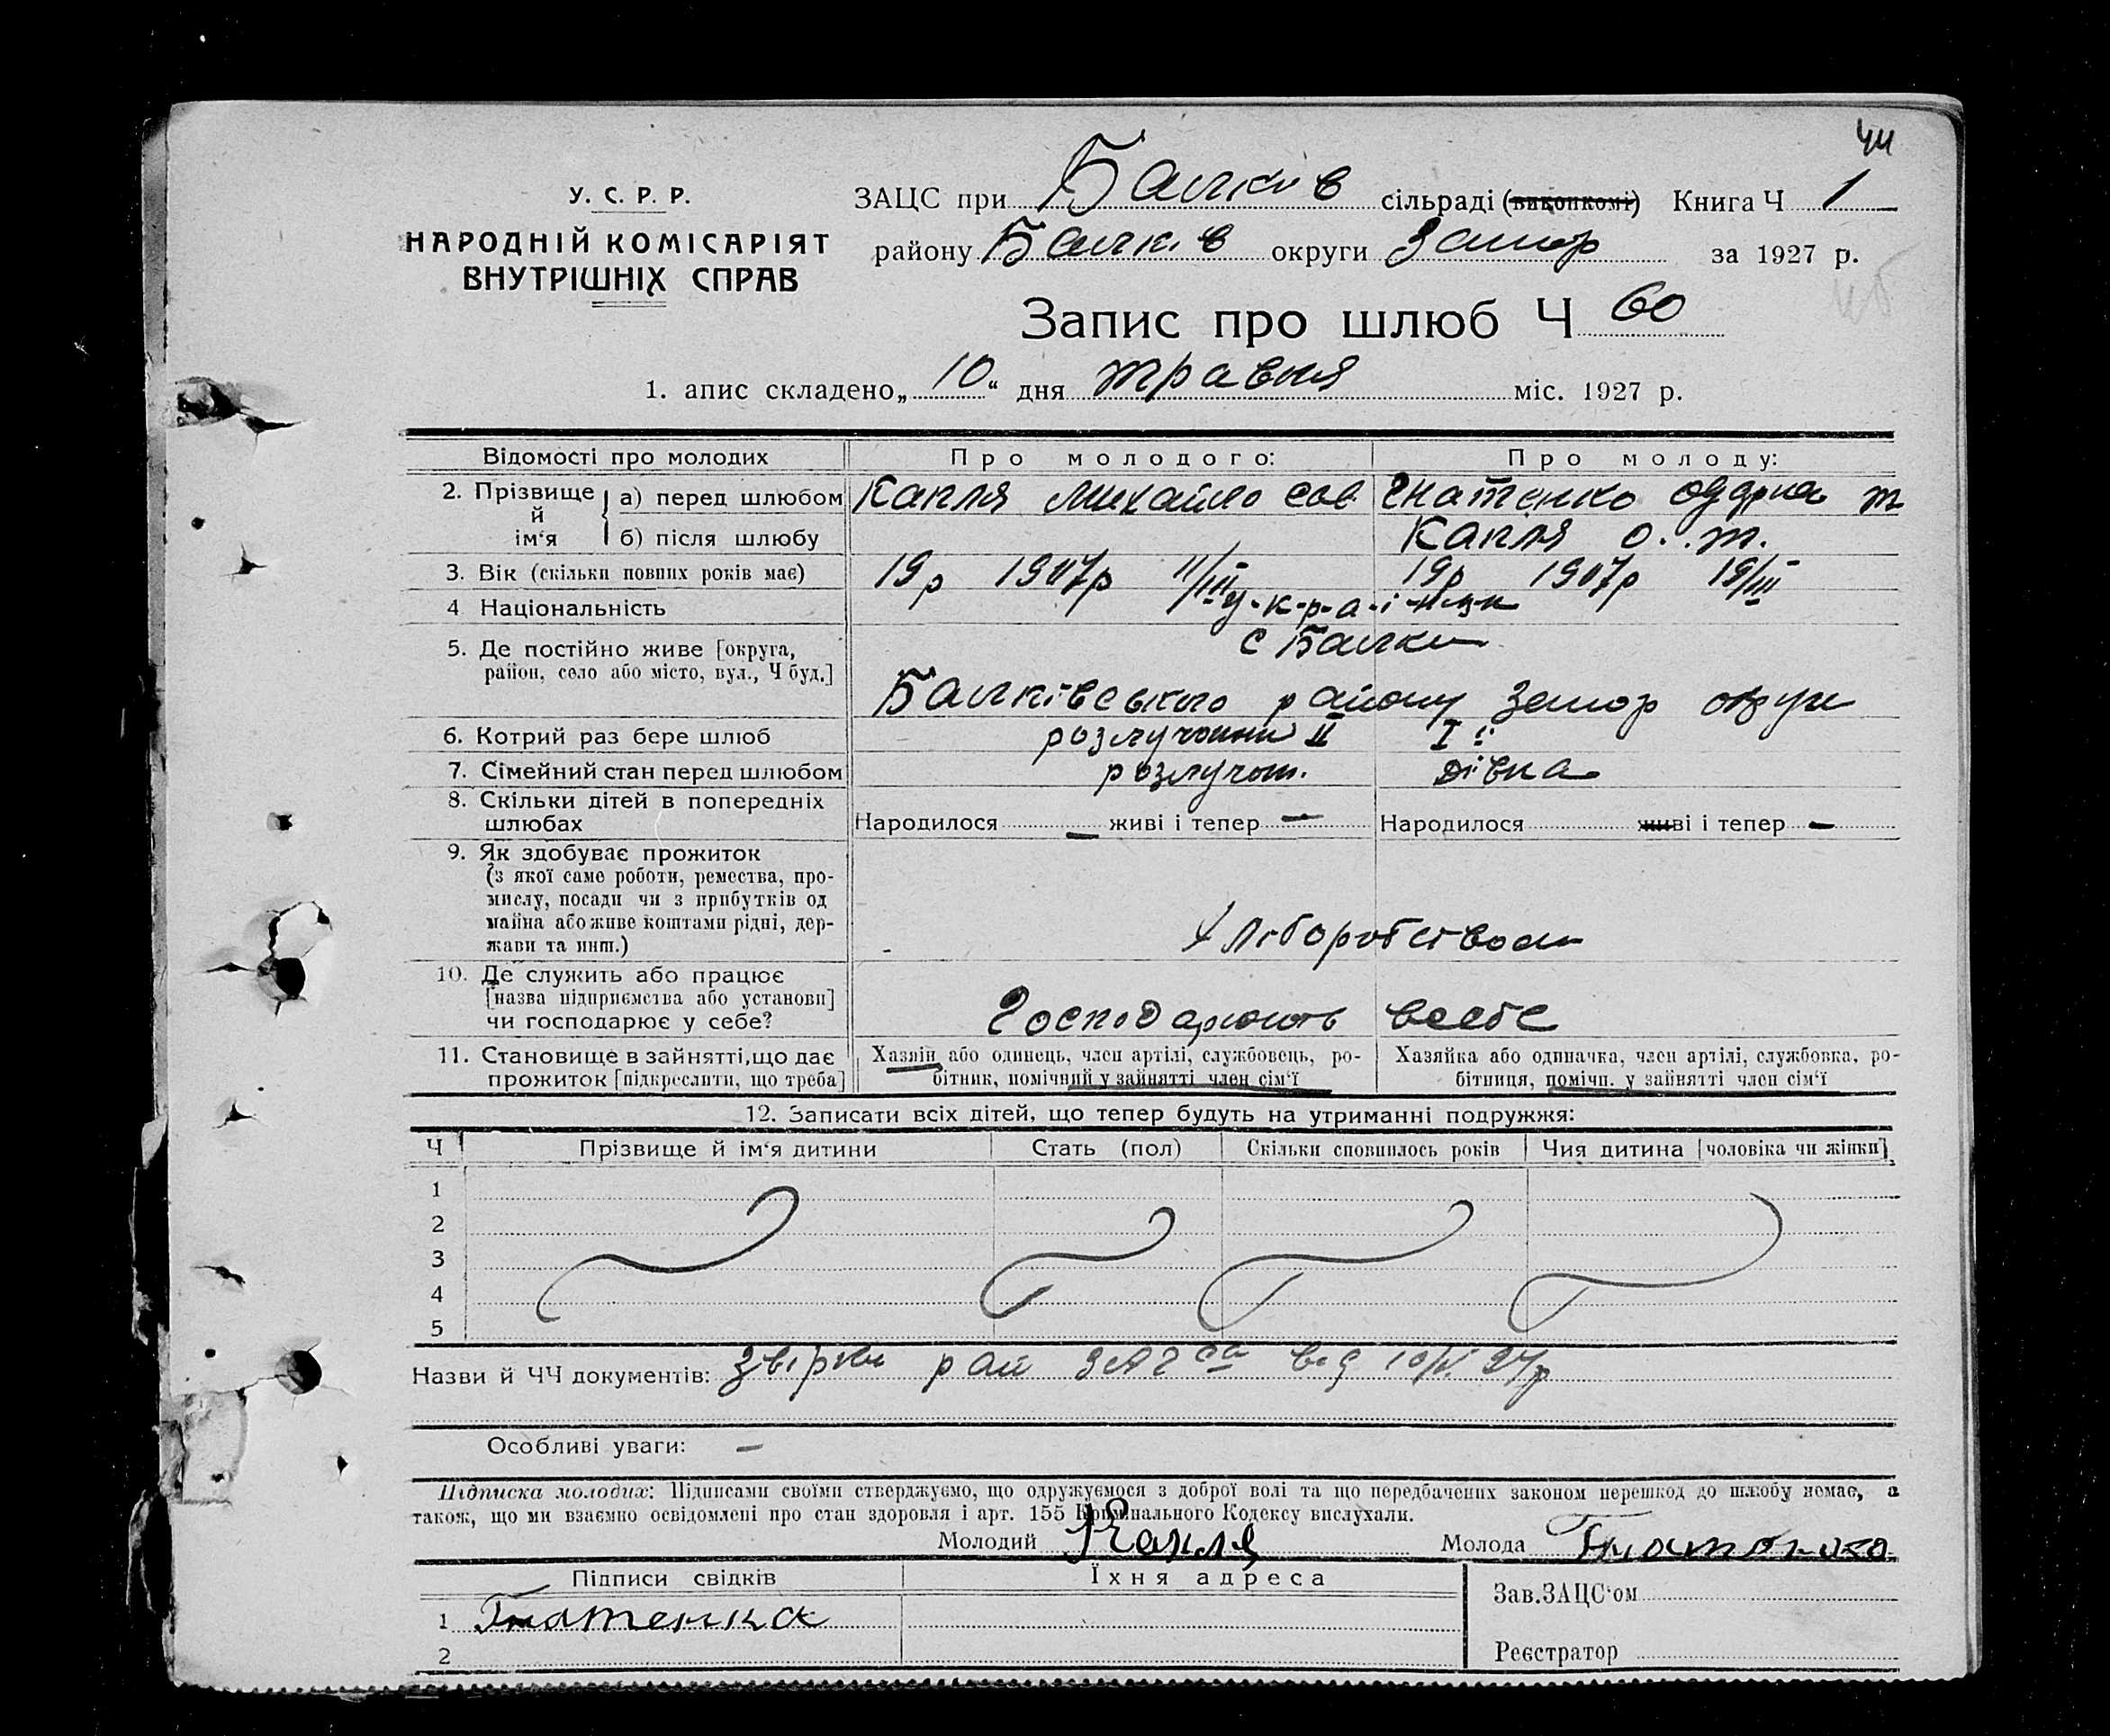 44
У. С. Р. Р.
НАРОДНІЙ КОМІСАРІЯТ
ВНУТРІШНІХ СПРАВ
ЗАЦС при Балків сільраді (виконкомі) Книга Ч 1
району Балків округи Запор за 1927 р.
Запис про шлюб Ч 60
1. апис складено „10“ дня травня міс. 1927 р.
Відомості про молодих Про молодого: Про молоду:
2. Прізвище й ім‘я а) перед шлюбом Капля Михайло Сав Гнатенко Одарка Т
б) після шлюбу Капля О. Т.
3. Вік (скільки повних років має) 19р 1907р 11/III 19р 1907р 19/III
4 Національність у-к-р-а-ї-н-ц-и
5. Де постійно живе [округа, район, село або місто, вул., Ч буд.] с Балки
Балківського району Запор округи
6. Котрий раз бере шлюб розлучений II I й
7. Сімейний стан перед шлюбом розлучен. дівка
8. Скільки дітей в попередніх шлюбах Народилося — живі і тепер — Народилося живі і тепер —
9. Як здобуває прожиток
(з якої саме роботи, ремества, промислу, посади чи з прибутків од майна або живе коштами рідні, держави та инш.) Хліборобством
10. Де служить або працює
[назва підприємства або установи]
чи господарює у себе? Господарюють всебе
11. Становище в зайнятті, що дає прожиток [підкреслити, що треба] Хазяїн або одинець, член артілі, службовець, робітник, помічний у зайнятті член сім‘ї Хазяйка або одиначка, член артілі, службовка, робітниця, помічн. у зайнятті член сім‘ї
12. Записати всіх дітей, що тепер будуть на утриманні подружжя:
Ч Прізвище й ім‘я дитини Стать (пол) Скільки сповнилось років Чия дитина [чоловіка чи жінки]
1
2
3
4
5
Назви й ЧЧ документів: звірки рай ЗАГса від 10/V. 27р
Особливі уваги: —
Підписка молодих: Підписами своїми стверджуємо, що одружуємося з доброї волі та що передбачених законом перешкод до шлюбу немає, а
також, що ми взаємно освідомлені про стан здоровля і арт. 155 Кримінального Кодексу вислухали.
Молодий Капля Молода Гнатенко
Підписи свідків Їхня адреса
Зав. ЗАЦС‘ом
1 Гнатенко
2
Реєстратор